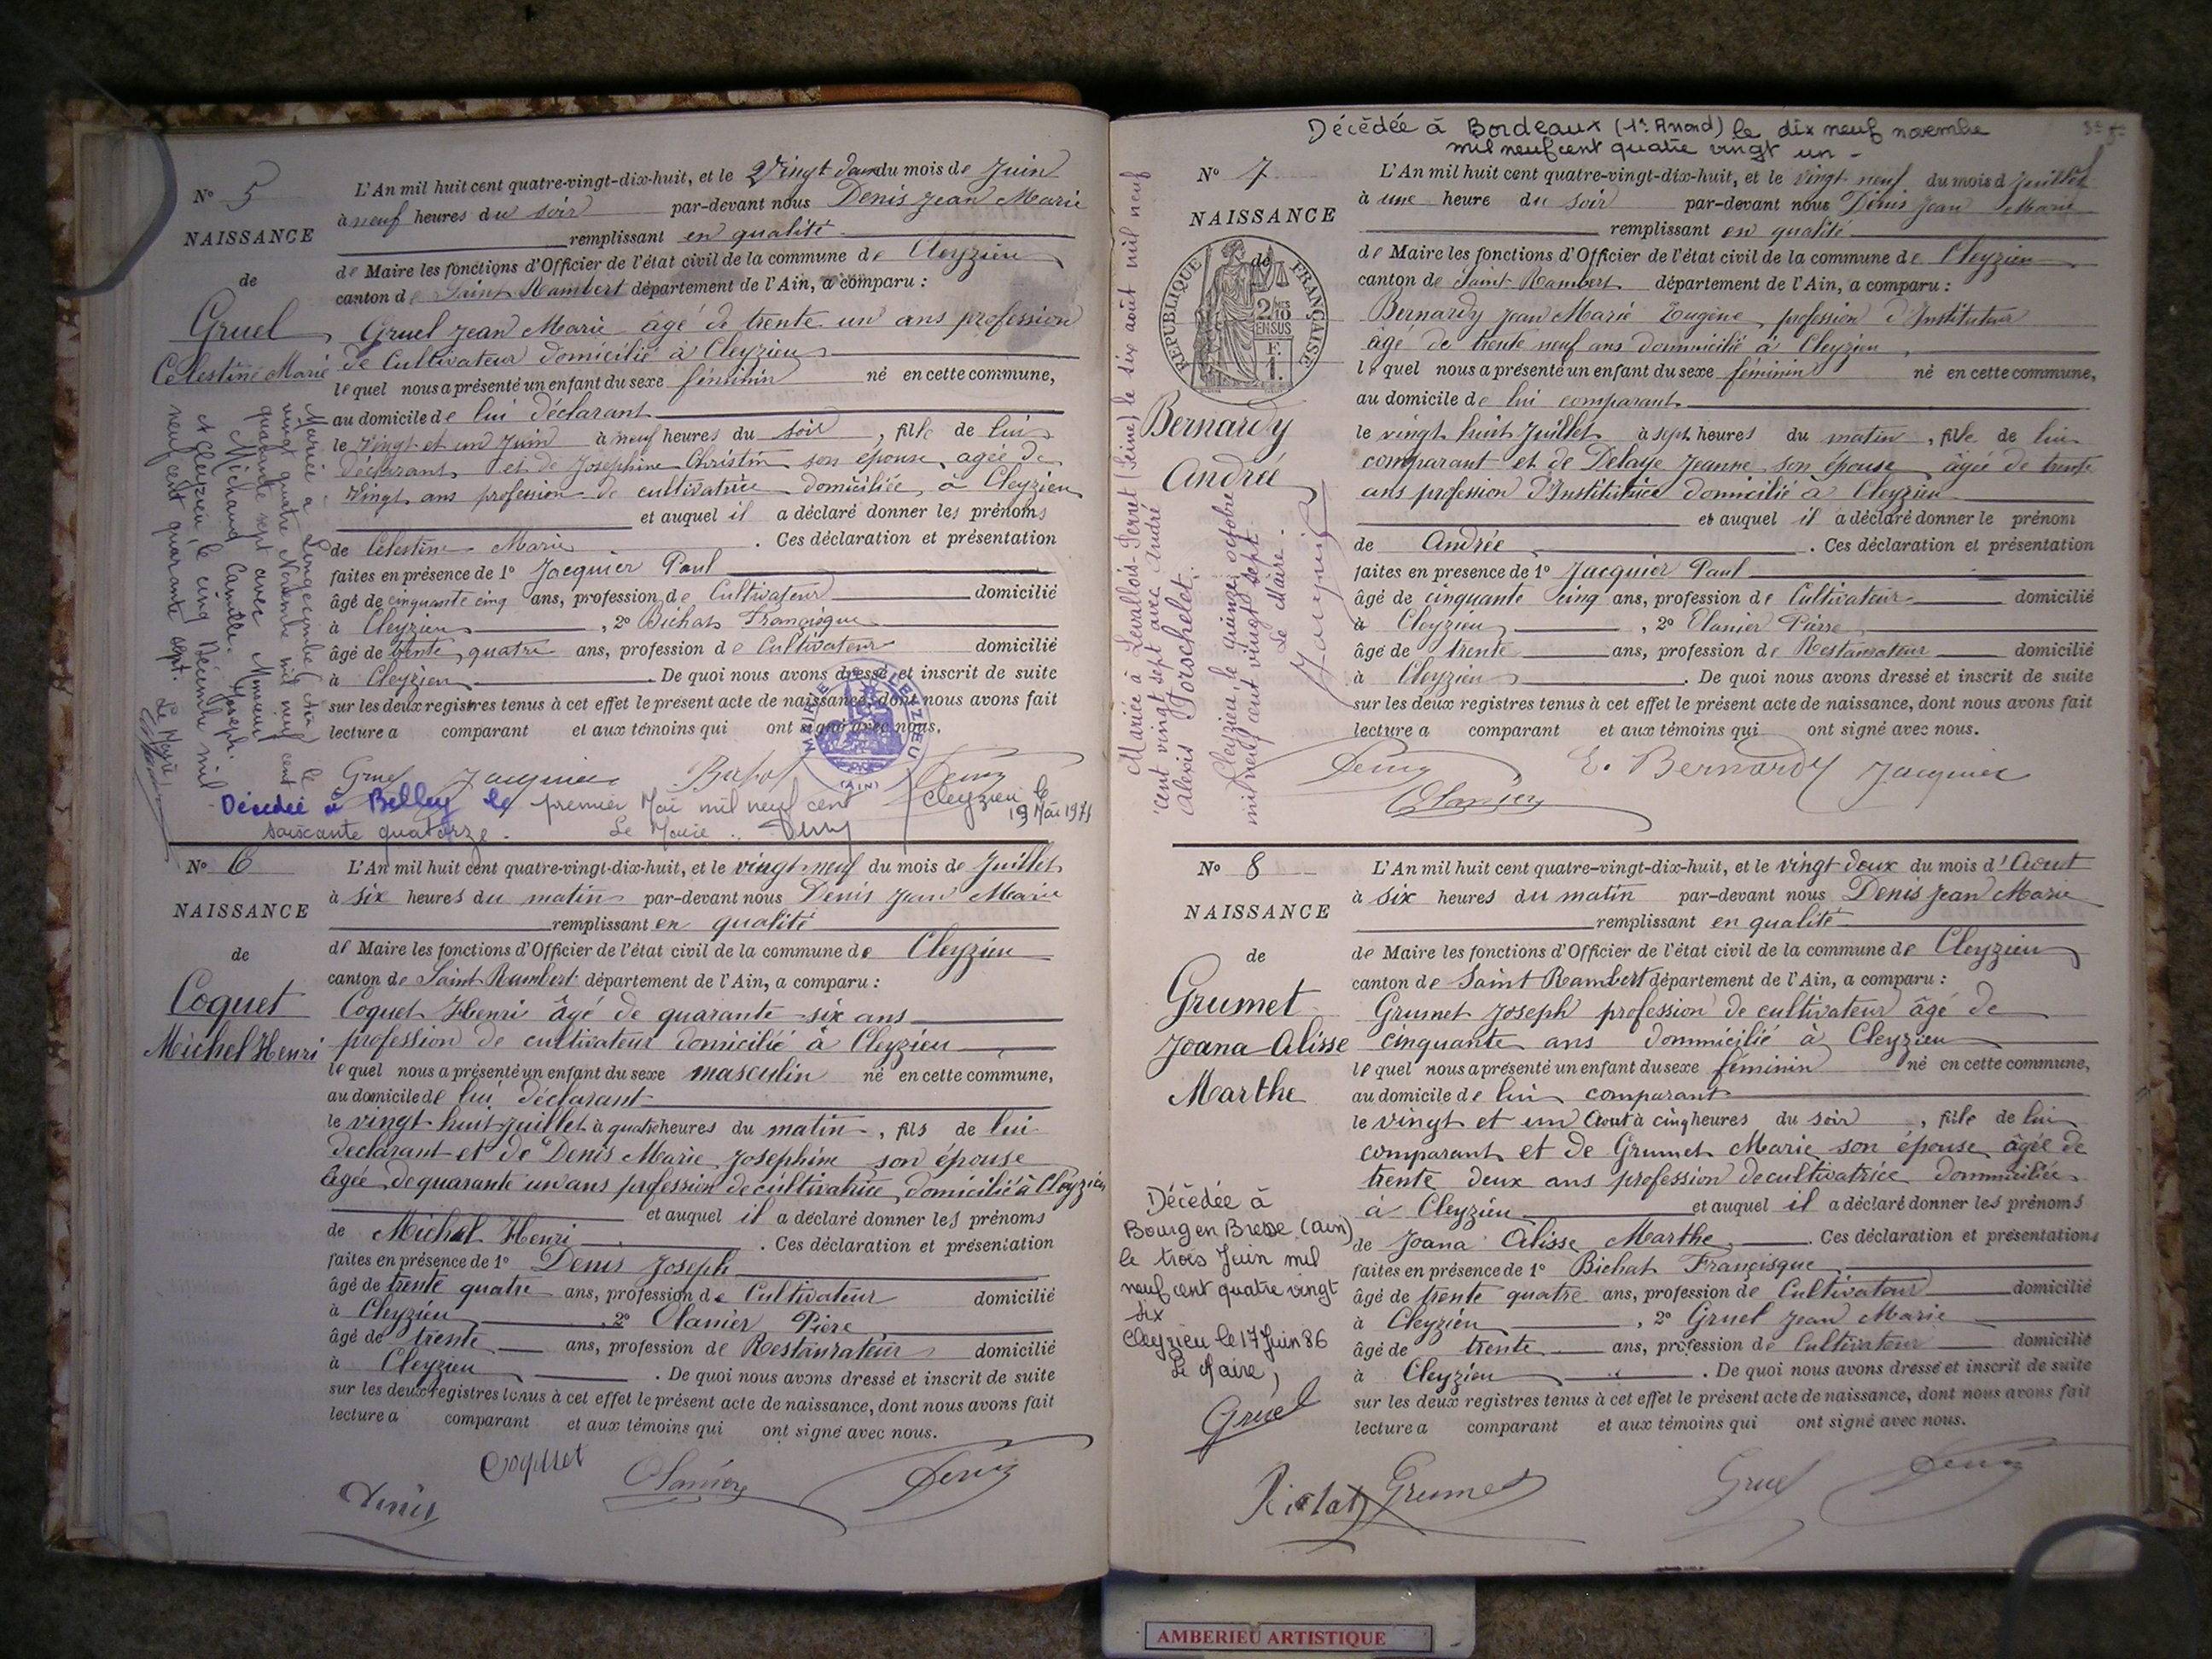 N° 5
NAISSANCE
de
Gruel
Celestine Marie
L'An mil huit cent quatre-vingt-dix-huit, et le Vingt deux du mois de Juin
à neuf heures du soir par-devant nous Denis Jean Marie
remplissant en qualité
de Maire les fonctions d'Officier de l'état civil de la commune de Cleyzieu
canton de Saint Rambert département de l'Ain, a comparu :
Gruel Jean Marie âgé de trente un ans profession
de Cultivateur domicilié à Cleyzieu
lequel nous a présenté un enfant du sexe féminin né en cette commune,
au domicile de lui déclarant
le vingt et un Juin à neuf heures du soir, fille de lui
déclarant et de Josephine Christin son épouse, agée de
vingt ans profession de cultivatrice domiciliée à Cleyzieu
et auquel il a déclaré donner les prénoms
de Célestine Marie. Ces déclaration et présentation
faites en présence de 1° Jacquier Paul
âgé de cinquante cinq ans, profession de Cultivateur domicilié
à Cleyzieu, 2° Bichat Françisque
âgé de trente quatre ans, profession de Cultivateur domicilié
à Cleyzieu. De quoi nous avons dressé et inscrit de suite
sur les deux registres tenus à cet effet le présent acte de naissance, dont nous avons fait
lecture a comparant et aux témoins qui ont signé avec nous.
Gruel Jacquier Bichat Denis
Mariée à Longecombe Ain le
vingt quatre Novembre mil neuf cent
quarante sept avec Monsieur
Michaud Camille Joseph.
et Cleyzieu le cinq Décembre mil
neuf cent quarante sept. Le Maire
MAIRIE DE CLEYZIEU
(AIN)
Décédée à Belley le premier Mai mil neuf cent
soixante quatorze. Le Maire
Cleyzieu le
19 Mai 1974
N° 6
NAISSANCE
de
Coquet
Michel Henri
L'An mil huit cent quatre-vingt-dix-huit, et le vingt neuf du mois de Juillet
à six heures du matin par-devant nous Denis Jean Marie
remplissant en qualité
de Maire les fonctions d'Officier de l'état civil de la commune de Cleyzieu
canton de Saint Rambert département de l'Ain, a comparu :
Coquet Henri âgé de quarante six ans
profession de cultivateur domicilié à Cleyzieu
lequel nous a présenté un enfant du sexe masculin né en cette commune,
au domicile de lui déclarant
le vingt huit Juillet à quatre heures du matin, fils de lui
declarant et de Denis Marie Josephine son épouse
âgée de quarante un ans profession de cultivatrice domicilié à Cleyzieu
et auquel il a déclaré donner les prénoms
de Michel Henri. Ces déclaration et présentation
faites en présence de 1° Denis Joseph
âgé de trente quatre ans, profession de Cultivateur domicilié
à Cleyzieu, 2° Olanier Pière
âgé de trente ans, profession de Restaurateur domicilié
à Cleyzieu. De quoi nous avons dressé et inscrit de suite
sur les deux registres tenus à cet effet le présent acte de naissance, dont nous avons fait
lecture a comparant et aux témoins qui ont signé avec nous.
Coquet
Denis Olanier Denis
Décédée à Bordeaux (1er Arrond) le dix neuf novembre
mil neuf cent quatre vingt un -
N° 7
NAISSANCE
de
REPUBLIQUE FRANÇAISE
2/10
EN SUS
F.
1.
Bernardy
Andrée
L'An mil huit cent quatre-vingt-dix-huit, et le vingt neuf du mois d Juillet
à une heure du soir par-devant nous Denis Jean Marie
remplissant en qualité
de Maire les fonctions d'Officier de l'état civil de la commune de Cleyzieu
canton de Saint-Rambert département de l'Ain, a comparu :
Bernardy Jean Marie Eugène profession d'Instituteur
âgé de trente neuf ans dommicilié à Cleyzieu,
lequel nous a présenté un enfant du sexe féminin né en cette commune,
au domicile de lui comparant
le vingt huit Juillet à sept heures du matin, fille de lui
comparant et de Delaye Jeanne son épouse âgée de trente
ans profession d'Institutrice domicilié à Cleyzieu
et auquel il a déclaré donner le prénom
de Andrée. Ces déclaration et présentation
faites en présence de 1° Jacquier Paul
âgé de cinquante cinq ans, profession de Cultivateur domicilié
à Cleyzieu, 2° Olanier Pière
âgé de trente ans, profession de Restaurateur domicilié
à Cleyzieu. De quoi nous avons dressé et inscrit de suite
sur les deux registres tenus à cet effet le présent acte de naissance, dont nous avons fait
lecture a comparant et aux témoins qui ont signé avec nous.
Denis E. Bernardy Jacquier
Olanier
Mariée à Levallois-Perret (Seine) le six août mil neuf
cent vingt sept avec André
Alexis Porschelet.
Cleyzieu, le quinze octobre
mil neuf cent vingt sept.
Le Maire.
Jacquier
N° 8
NAISSANCE
de
Grumet
Joana Alisse
Marthe
L'An mil huit cent quatre-vingt-dix-huit, et le vingt deux du mois d'Aout
à six heures du matin par-devant nous Denis Jean Marie
remplissant en qualité
de Maire les fonctions d'Officier de l'état civil de la commune de Cleyzieu
canton de Saint Rambert département de l'Ain, a comparu :
Grumet Joseph profession de cultivateur âgé de
cinquante ans dommicilié à Cleyzieu
lequel nous a présenté un enfant du sexe féminin né en cette commune,
au domicile de lui comparant
le vingt et un Aout à cinq heures du soir, fille de lui
comparant et de Grumet Marie son épouse âgée de
trente deux ans profession de cultivatrice dommiciliée
à Cleyzieu et auquel il a déclaré donner les prénoms
de Joana Alisse Marthe. Ces déclaration et présentations
faites en présence de 1° Bichat Françisque
âgé de trente quatre ans, profession de Cultivateur domicilié
à Cleyzieu, 2° Gruel Jean Marie
âgé de trente ans, profession de Cultivateur domicilié
à Cleyzieu. De quoi nous avons dressé et inscrit de suite
sur les deux registres tenus à cet effet le présent acte de naissance, dont nous avons fait
lecture a comparant et aux témoins qui ont signé avec nous.
Bichat Grumet Gruel Denis
Décédée à
Bourg en Bresse (Ain)
le trois Juin mil
neuf cent quatre vingt
six
Cleyzieu le 17 Juin 86
Le Maire,
Gruel
AMBERIEU ARTISTIQUE